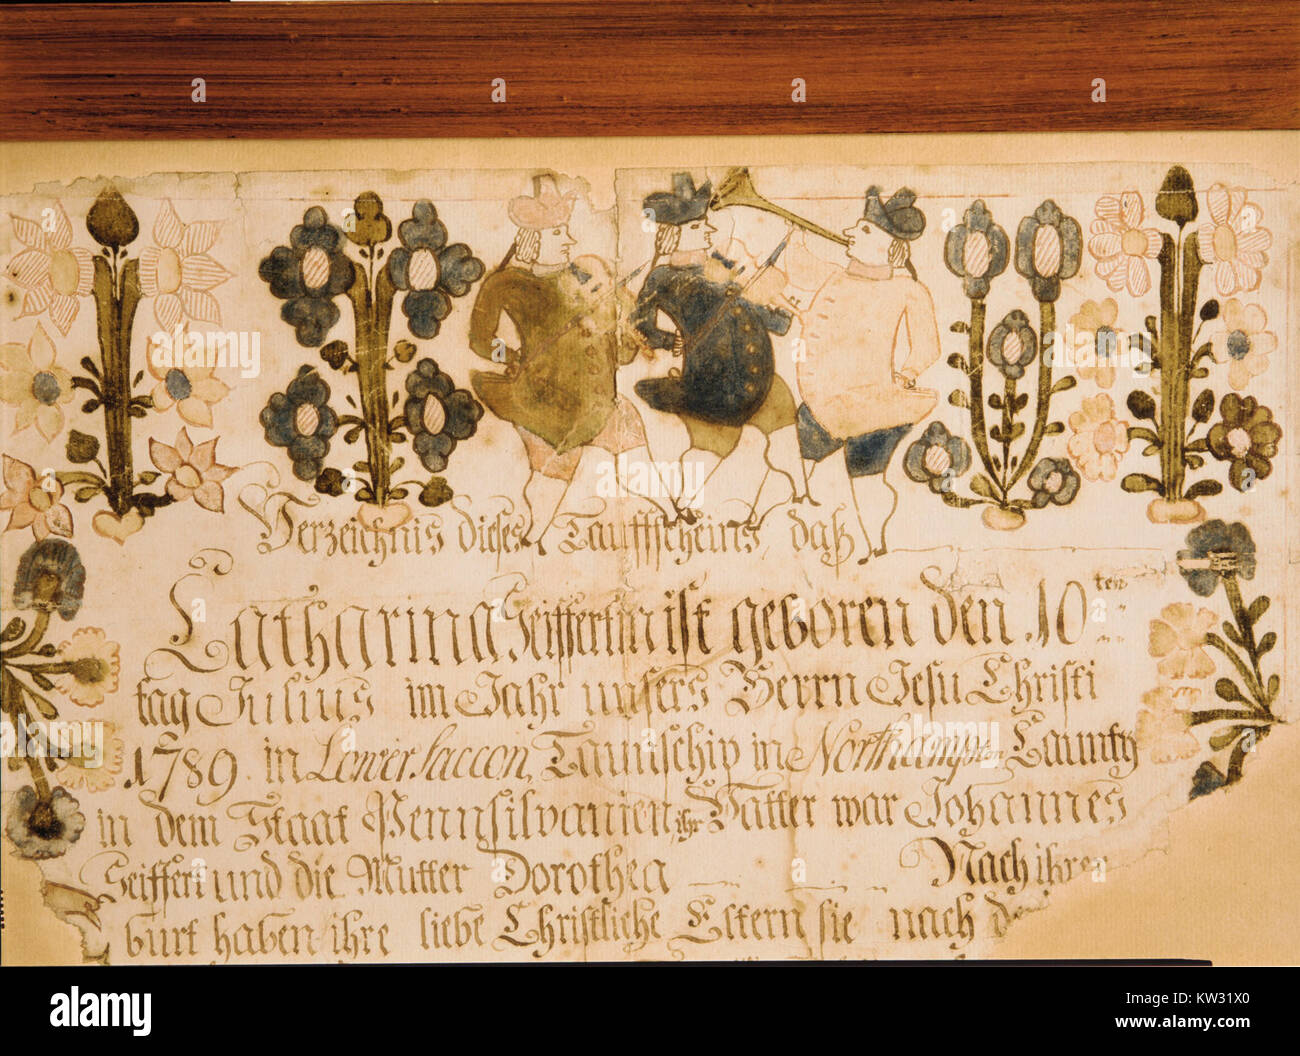 Verzeichnis dieses Taufscheins, daß
Catharina Seiffertin ist geboren den 10ten
tag Julius im Jahr unsers Herrn Jesu Christi
1789 in Lower Saccon Taunschip in Northampton Caunty
in dem Staat Pennsilvanien, ihr Vatter war Johannes
Seiffert und die Mutter Dorothea Nach ihrer
burt haben ihre liebe Christliche Eltern sie nach
a a a a
alamy
Image ID: KW31X0
www.alamy.com